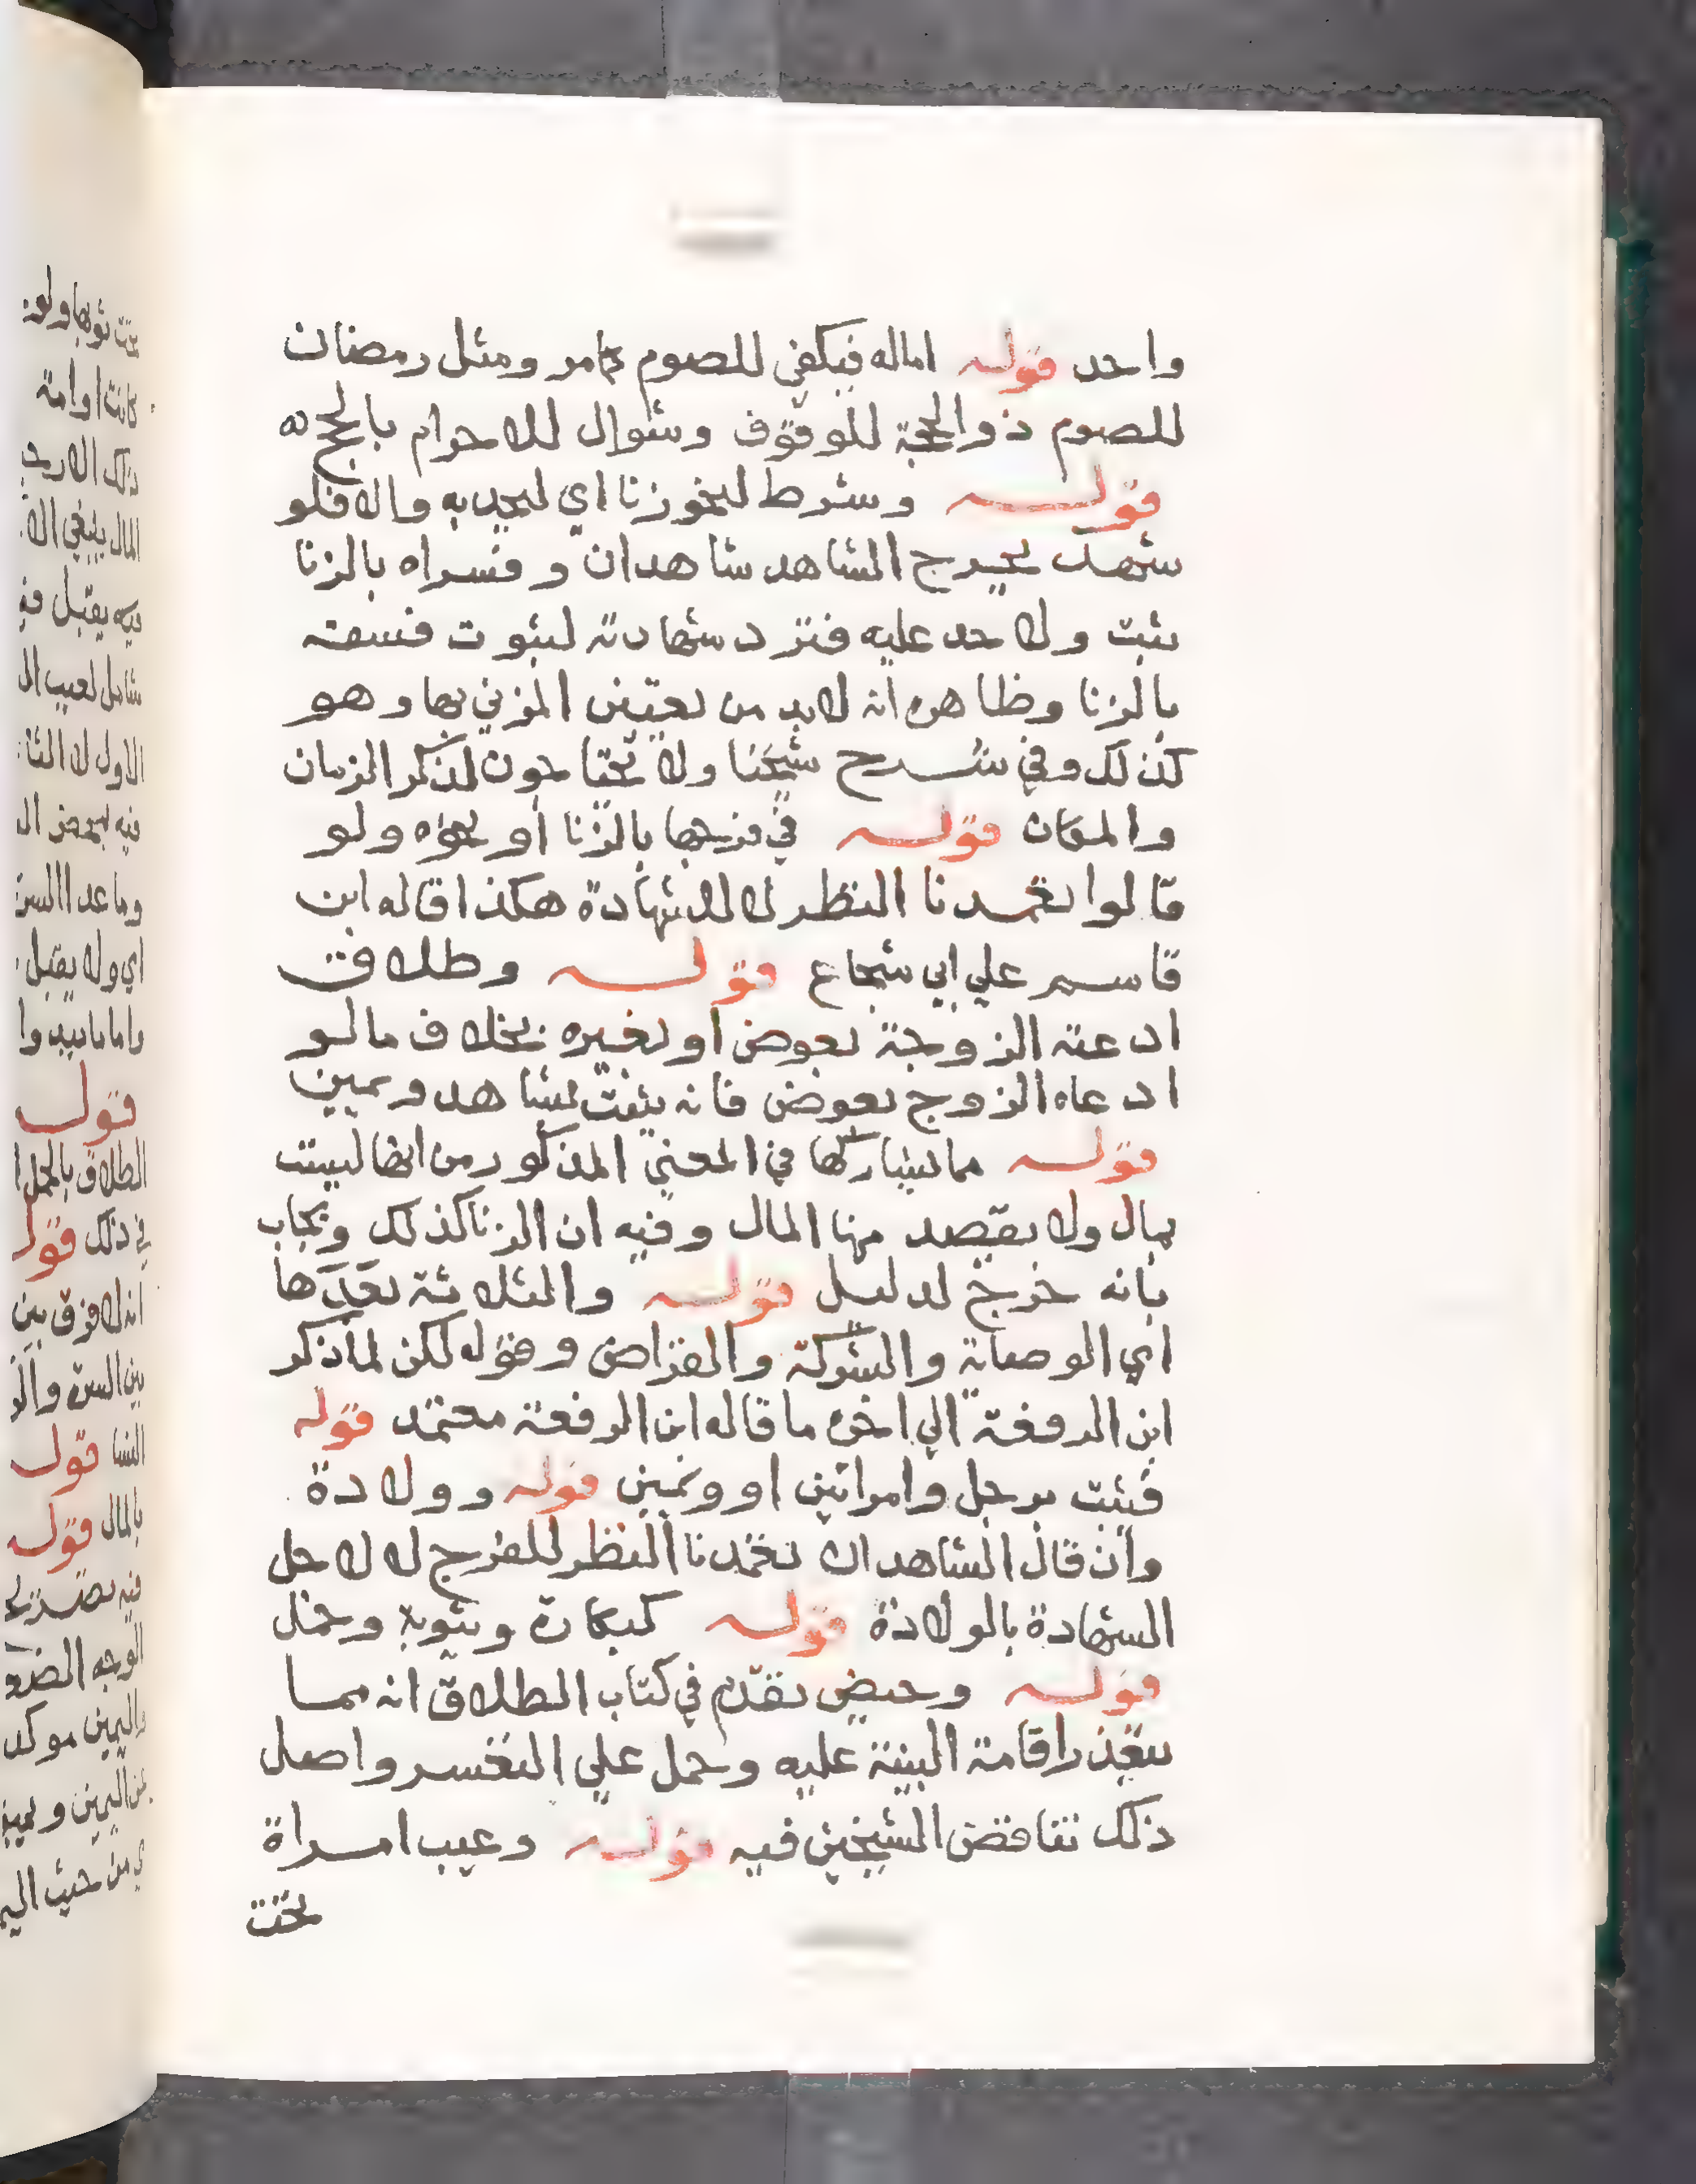 واحد قوله اماله فيكفي للصوم كامر ومثل رمضان
للصوم ذوالحجة للوقوف وشوال للاحرام بالحج
قوله وشرط لنحو زنا اي ليحد به والا فلو
شهد بجرح الشاهد شاهدان وفسراه بالزنا
ثبت ولا حد عليه فترد شهادته لثبوت فسقه
بالزنا وظاهره انه لابد من تعيين المزني بها وهو
كذلك وفي شرح شيخنا ولا يحتاجون لذكر الزمان
والمكان قوله في فرجها بالزنا او نحوه ولو
قالوا تعمدنا النظر لا للشهادة هكذا قاله ابن
قاسم علي ابي شجاع قوله وطلاق
ادعته الزوجة بعوض او بغيره بخلاف مالو
ادعاه الزوج بعوض فانه يثبت بشاهد ويمين
قوله مما يشاركها في المعني المذكور من انها ليست
بمال ولا يقصد منها المال وفيه ان الزنا كذلك ويجاب
بانه خرج لدليل قوله والثلاثة بعدها
اي الوصاية والشركة والقراض وقوله لكن لما ذكر
ابن الرفعة الي اخره ما قاله ابن الرفعة معتمد قوله
فيثبت برجل وامراتين او ويمين قوله وولادة
وان قال الشاهدان تعمدنا النظر للفرج لا لاجل
الشهادة بالولادة قوله كبكارة وثيوبة وحمل
قوله وحيض تقدم في كتاب الطلاق انه مما
يتعذر اقامة البينة عليه وحمل علي التعسر واصل
ذلك تناقض الشيخين فيه قوله وعيب امراة
تحت